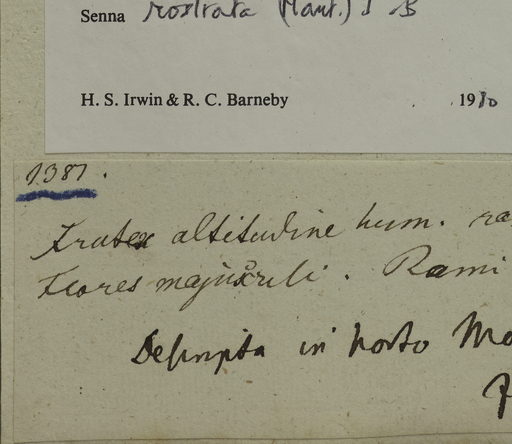 Senna rostrata (Mart.) I & B
H. S. Irwin & R. C. Barneby 1980
1381.
Frutex altitudine hum. ra
Flores majusculi. Rami
Descripta in horto Mo